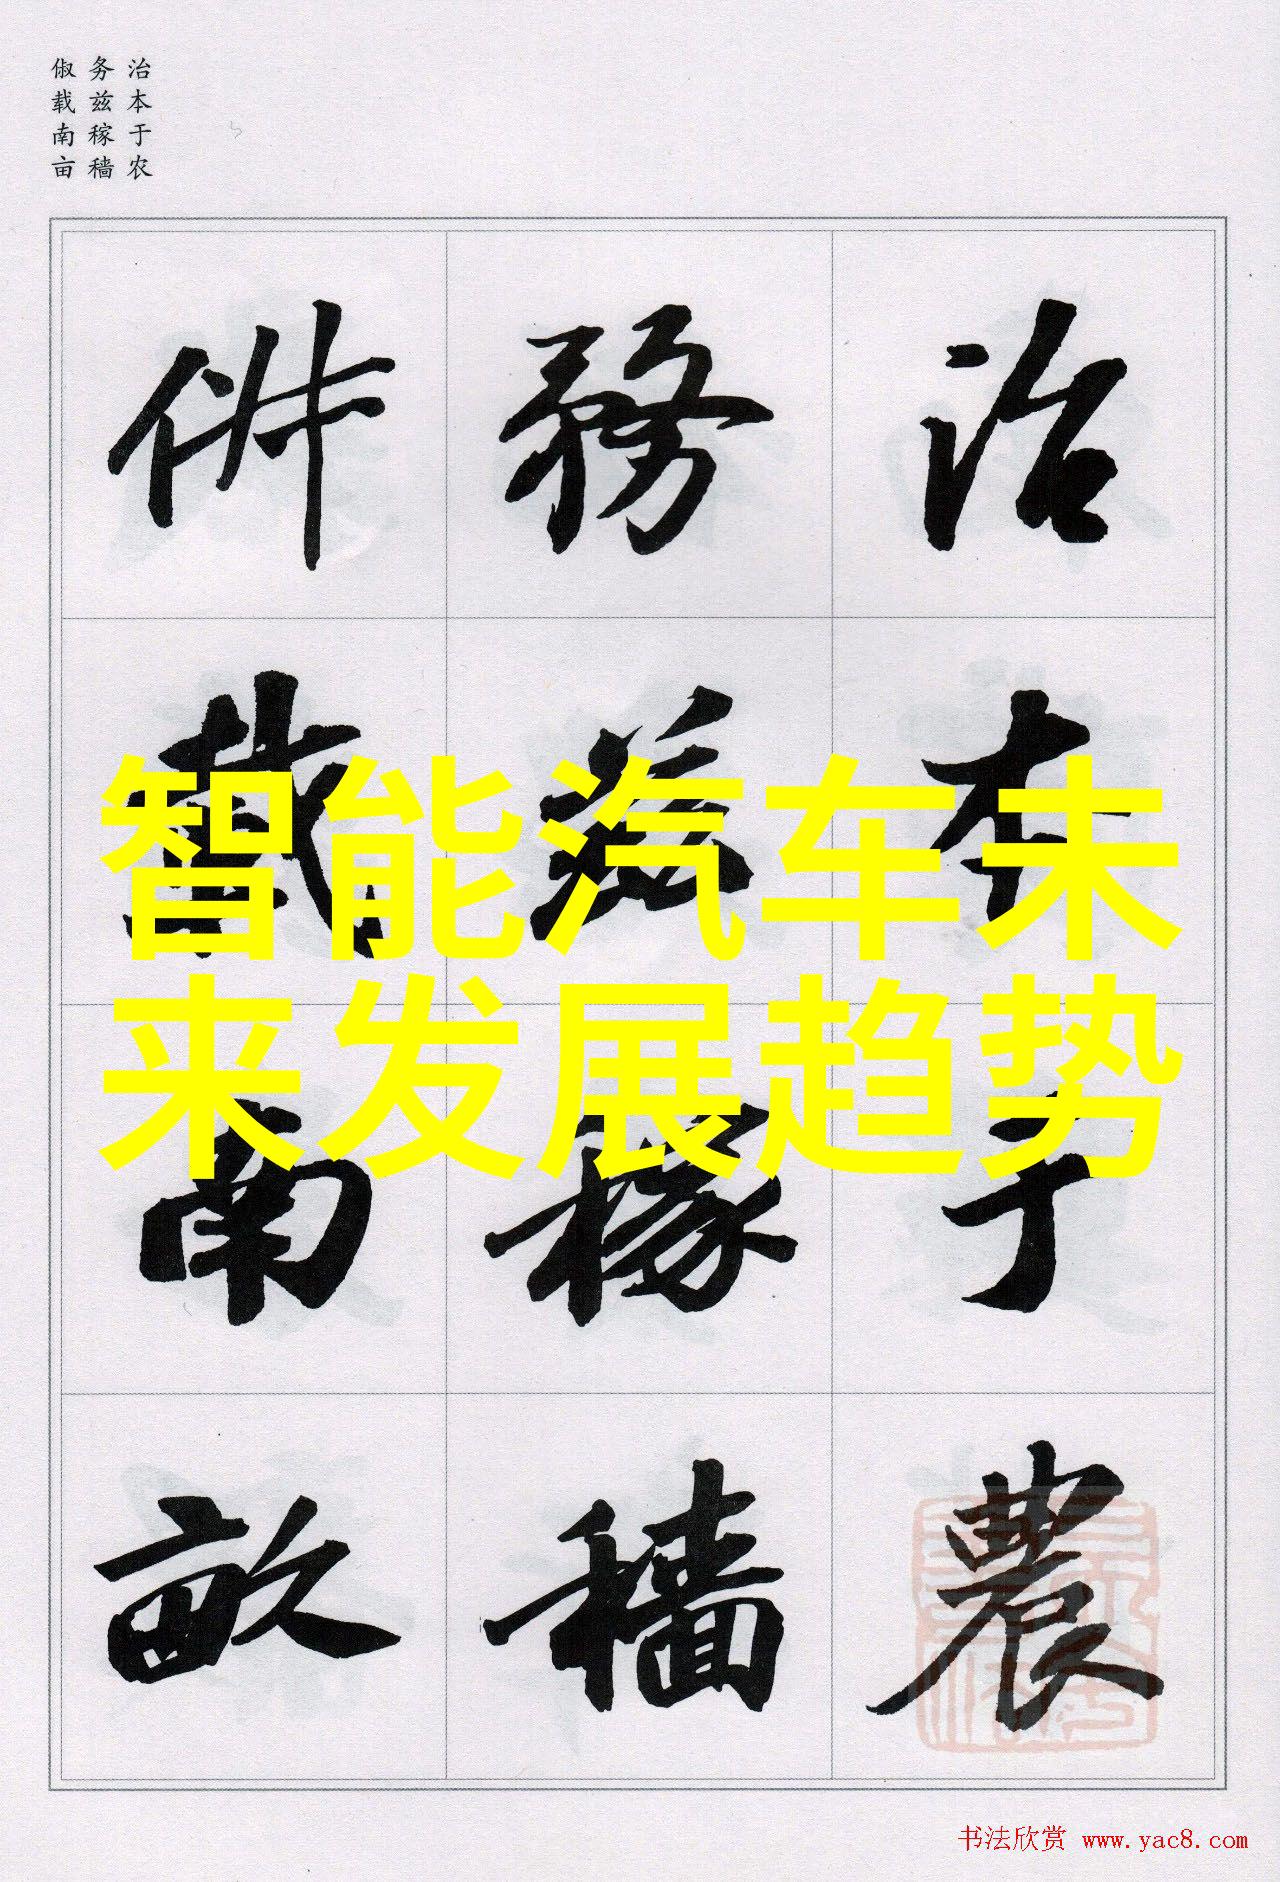 治本于农
务兹稼穑
俶载南亩
治本于農
務兹稼穡
俶載南畝
智能汽车未
来发展趋势
书法欣赏 www.yac8.com